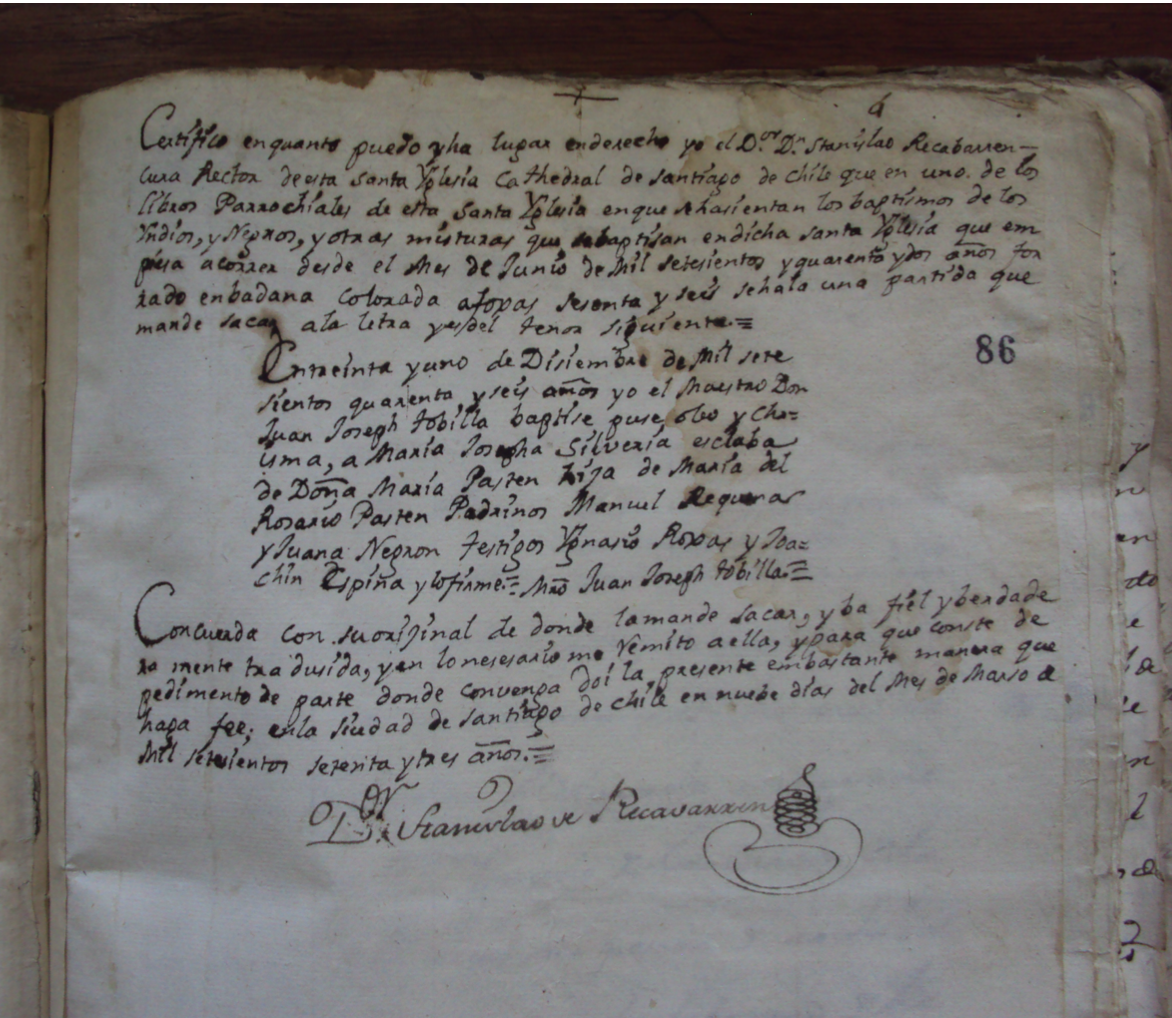 Certifico enquanto puedo yha lugar enderecho yo el D.or D.n Stanislao Recabarren
Cura Rector deesta Santa Yglesia Cathedral de Santiago de Chile que en uno de los
libros Parrochiales de esta Santa Yglesia enque sehasientan los baptismos de los
Yndios, y Negros, y otras misturas que sebaptisan endicha Santa Yglesia que em
piesa acorrer desde el Mes de Junio de Mil setesientos yquarenta ydos años for
rado enbadana colorada afoxas sesenta y seis señala una partida que
mande sacar ala letra yesdel tenor siguiente.=
86
Entreinta yuno de Disiembre de Mil sete
sientos quarenta y seis años yo el Maestro Don
Juan Joseph tobilla baptise puse, oleo y Chr=
isma, a Maria Josepha Silveria esclaba
de Doña Maria Pasten hija de Maria del
Rosario Pasten Padrinos Manuel Requena
y Juana Negron testigos Ygnasio Roxas y Joa=
chin Espiña y lofirme.= Mro Juan Joseph tobilla.=
Concuerda con suorijinal de donde lamande sacar, y ba fiel yberdade
ra mente tradusida, yen lonesesario me remito aella, ypara que conste de
pedimento de parte donde convenga doi la presente embastante manera que
haga fee; enla Siudad de Santiago de Chile en nuebe dias del Mes de Marso de
Mil setesientos setenta ytres años.=
D.or Stanislao de Recavarren